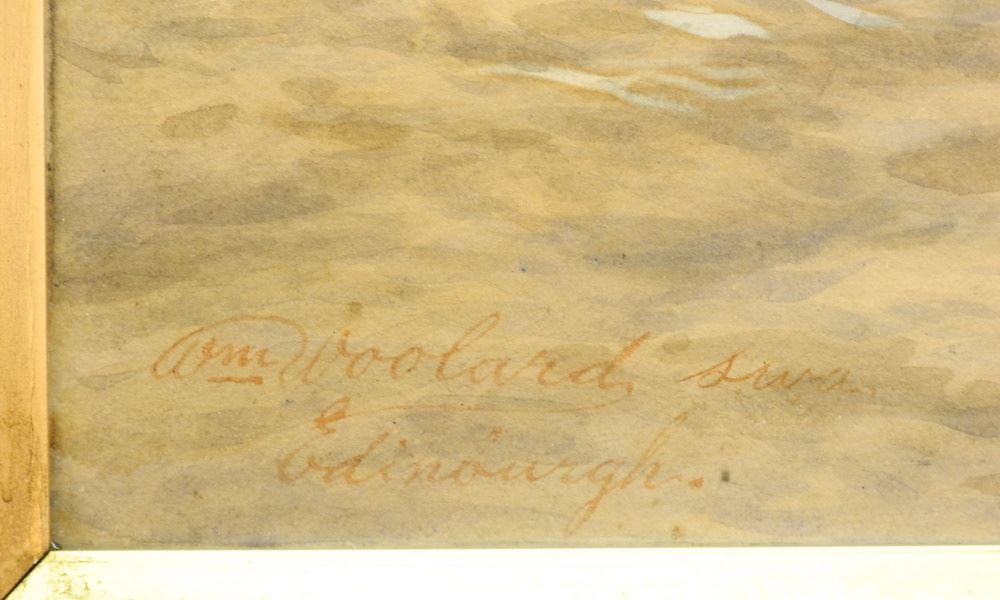 Wm Woolard,
Edinburgh.